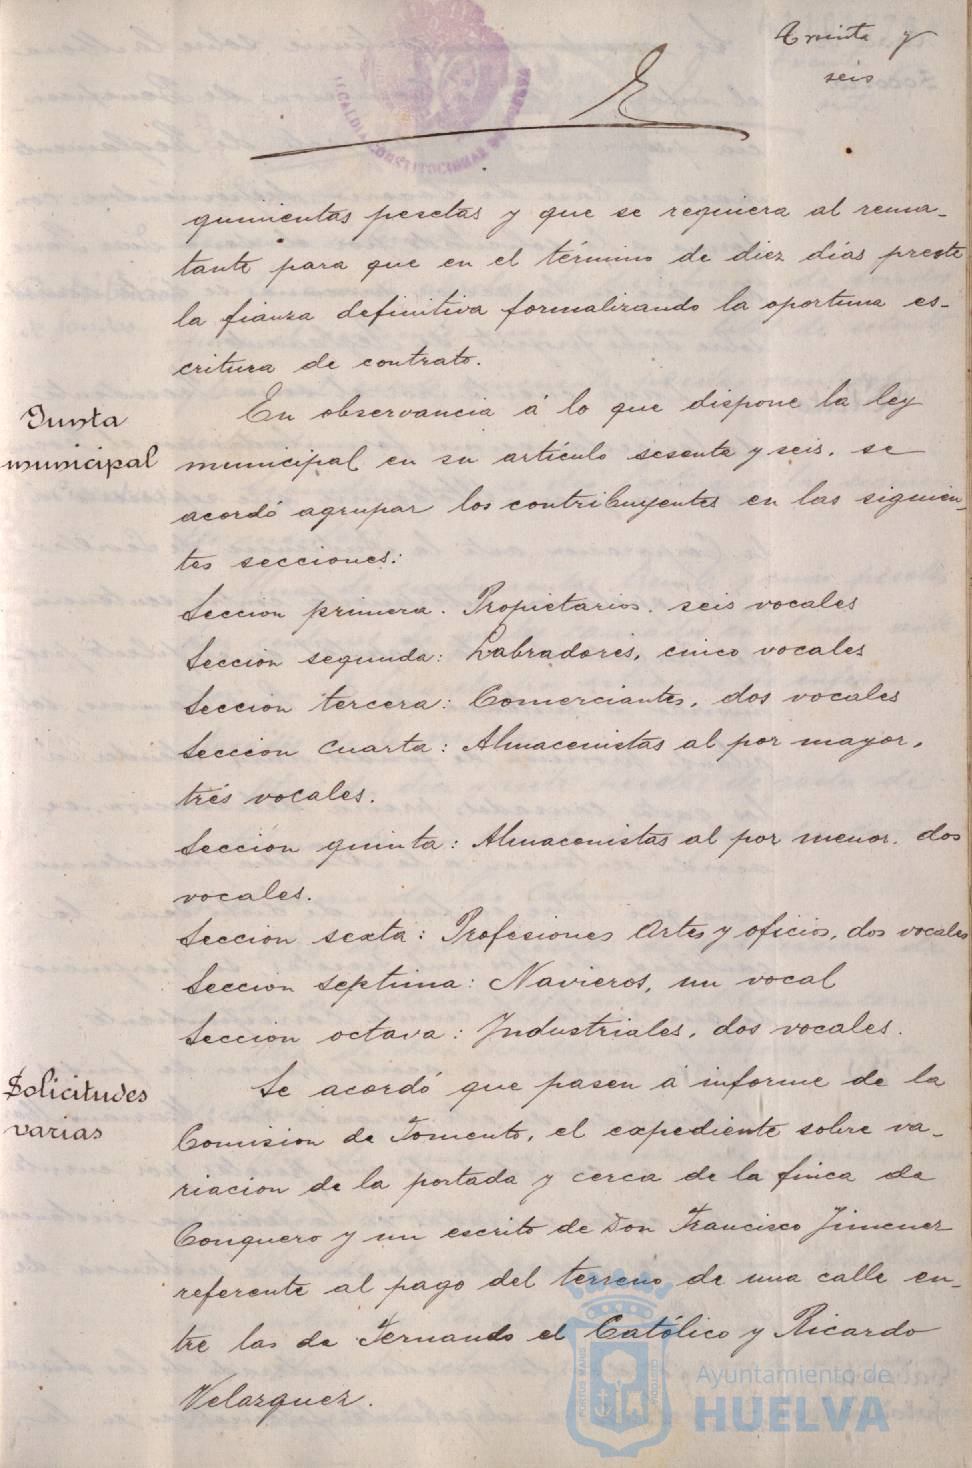 Treinta y
seis
ALCALDIA CONSTITUCIONAL DE HUELVA
quinientas pesetas y que se requiera al rema-
tante para que en el término de diez días preste
la fianza definitiva formalizando la oportuna es-
critura de contrato.
Junta
municipal
En observancia á lo que dispone la ley
municipal en su artículo sesenta y seis, se
acordó agrupar los contribuyentes en las siguien-
tes secciones:
Seccion primera. Propietarios. seis vocales
Seccion segunda: Labradores, cinco vocales
Seccion tercera: Comerciantes, dos vocales
Seccion cuarta: Almacenistas al por mayor,
trés vocales.
Seccion quinta: Almacenistas al por menor. dos
vocales.
Seccion sexta: Profesiones Artes y oficios, dos vocales
Seccion septima: Navieros, un vocal
Seccion octava: Industriales, dos vocales.
Solicitudes
varias
Se acordó que pasen á informe de la
Comision de Fomento, el expediente sobre va-
riacion de la portada y cerca de la finca da
Conquero y un escrito de Don Francisco Jimenez
referente al pago del terreno de una calle en-
tre las de Fernando el Católico y Ricardo
Velazquez.
Ayuntamiento de
HUELVA